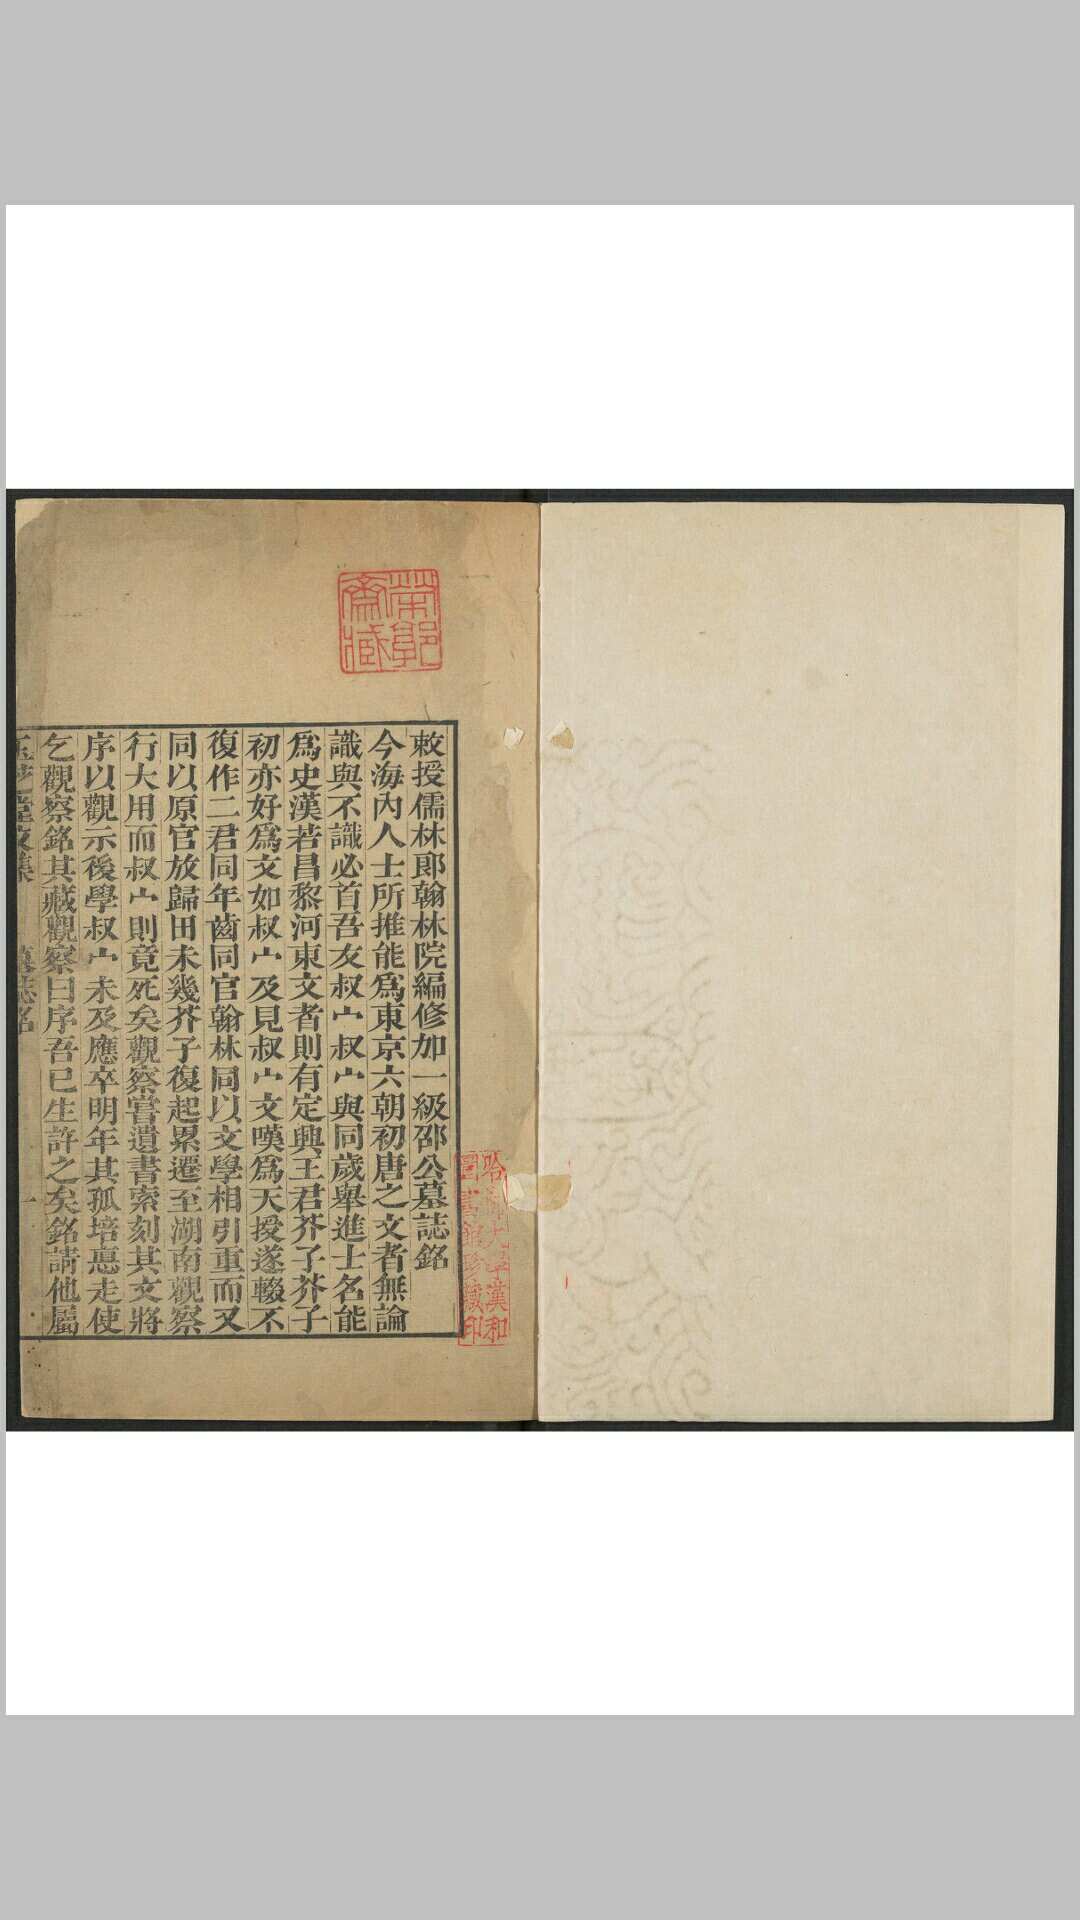 哈佛大學漢和
圖書館珍藏印
敕授儒林郎翰林院編修加一級邵公墓誌銘
今海內人士所推能爲東京六朝初唐之文者無論
識與不識必首吾友叔宀叔宀與同歲舉進士名能
爲史漢若昌黎河東文者則有定興王君芥子芥子
初亦好爲文如叔宀及見叔宀文嘆爲天授遂輟不
復作二君同年齒同官翰林同以文學相引重而又
同以原官放歸田未幾芥子復起累遷至湖南觀察
行大用而叔宀則竟死矣觀察嘗遺書索刻其文將
序以觀示後學叔宀未及應卒明年其孤培悳走使
乞觀察銘其藏觀察曰序吾已生許之矣銘請他屬
玉芝堂文集 墓誌銘 一